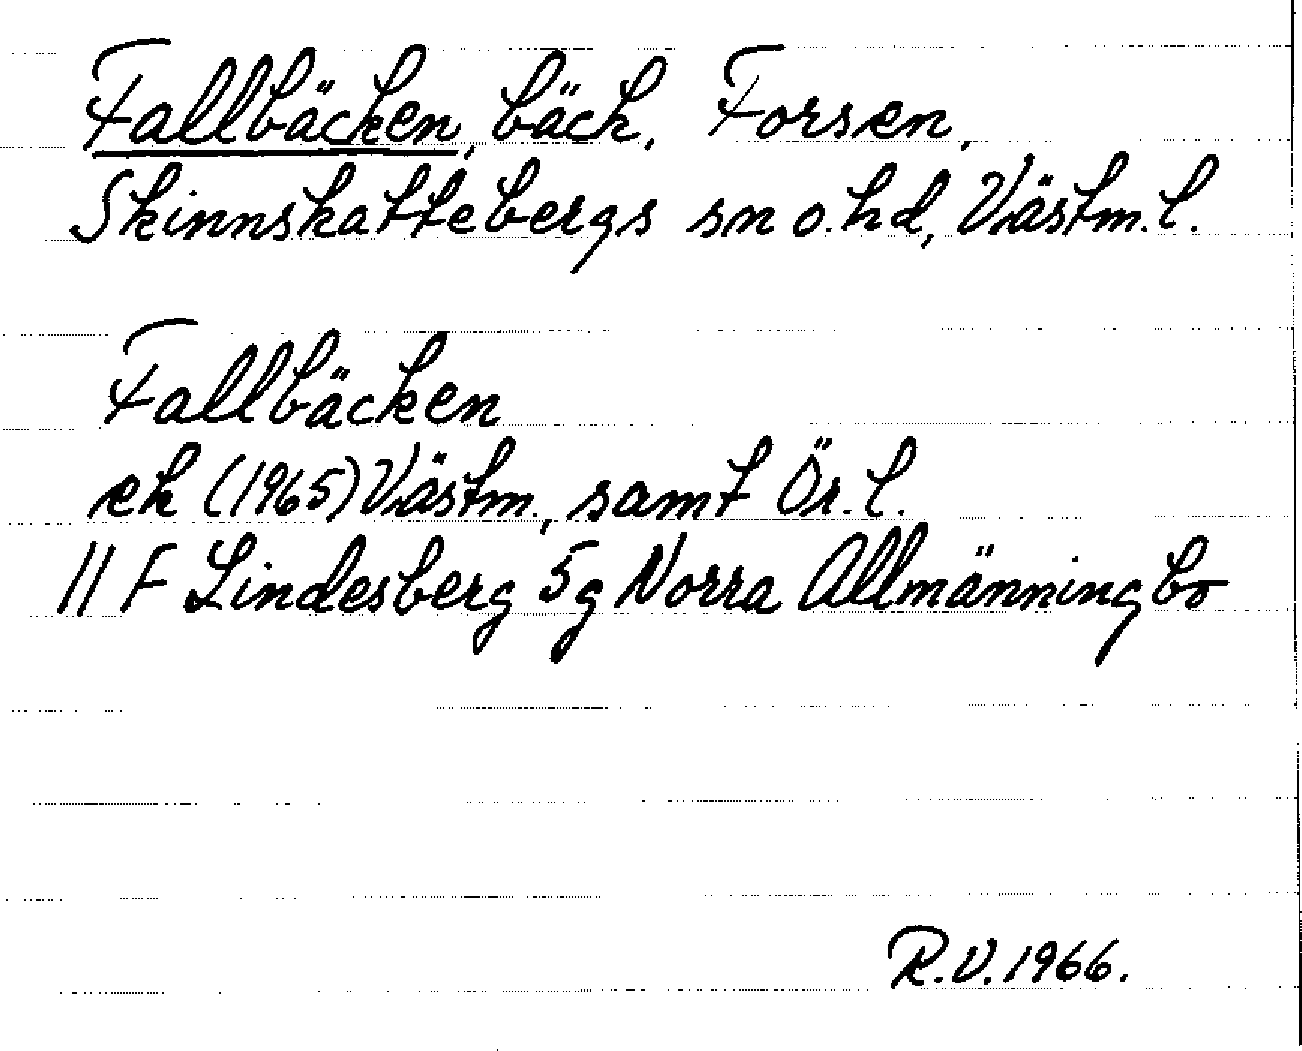 Fallbäcken, bäck, Forsen,
Skinnskattebergs sn o. hd, Västm. l.
Fallbäcken
ek (1965) Västm., samt Ör. l.
11 F Lindesberg 5g Norra Allmänningbo
R.V. 1966.